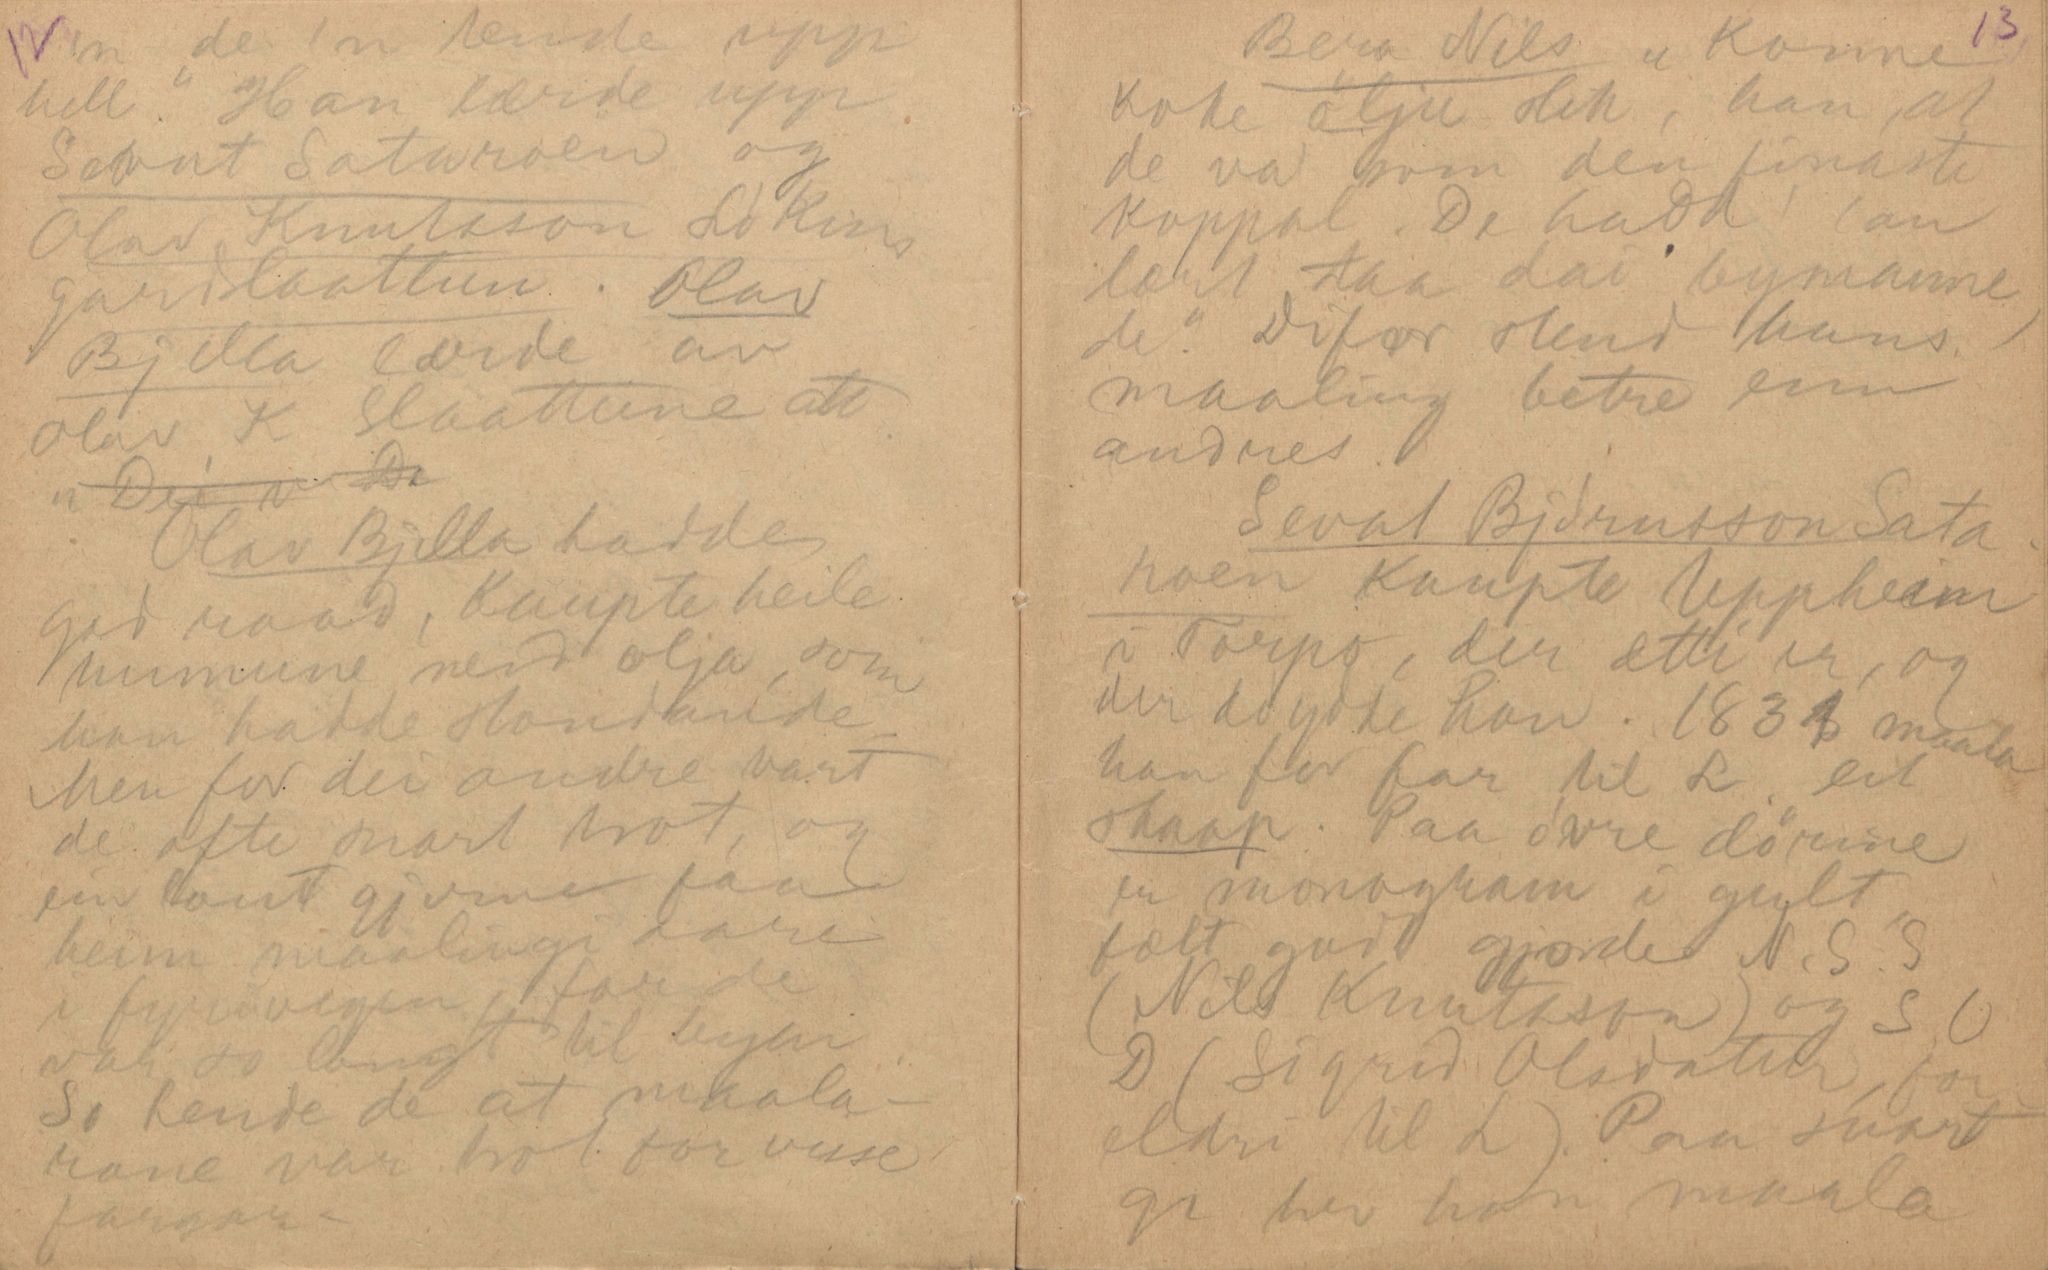 12
'n de 'n tende upp
hell." Han lærde upp
Sevat Sataroen og
Olav Knutsson Løkins
gardslaattun. Olav
Bjella lærde av
Olav K Slaattune att
" Dei v De
Olav Bjella hadde
god raad, kaupte heile
tunnune med olja, som
han hadde standande
Men for dei andre vart
de ofte snart trot, og
ein laut gjerne faa
heim maalingi bare
i fyrivegen, for de
var so langt til byen.
So hende de at maala-
rane var trot for visse
fargar-
13
Bera Nils " Konne
koke ölju slik, han, at
de va som den finaste
koppal. De hadd' 'an
lært taa dai bymanne
de." Difor stend hans
maaling betre enn
andres.
Sevat Björnsson Sata
roen kaupte Uppheim
i Torpo, der ætti er, og
der döydde han. 1831 maala
han for far til L. eit
skaap. Paa övre dörine
er monogram i gult,
godt gjorde N. S. S
(Nils Knutsson) og S O
D (Sigrid Olsdatter, for
eldri til L). Paa svart
gr hev han maala